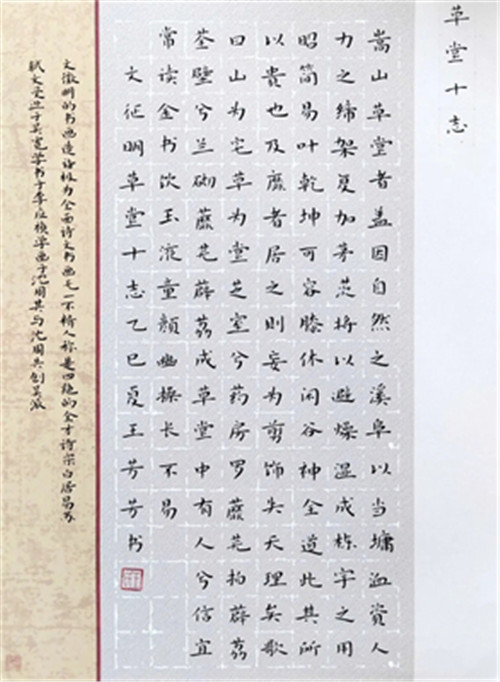 草堂十志
嵩山草堂者盖因自然之溪阜以当墉洫资人
力之缔架复加茅茨将以避燥湿成栋宇之用
昭简易叶乾坤可容膝休闲谷神全道此其所
以贵也及靡者居之则妄为剪饰失天理矣歌
曰山为宅草为堂芝室兮药房罗蘼芜拍薜荔
荃壁兮兰砌蘼芜薜荔成草堂中有人兮信宜
常读金书饮玉液童颜幽操长不易
文征明草堂十志乙巳夏王芳芳书
文徵明的书画造诣极为全面诗文书画无一不精人称是四绝的全才诗宗白居易苏
轼文受业于吴宽学书于李应祯学画于沈周其与沈周共创吴派